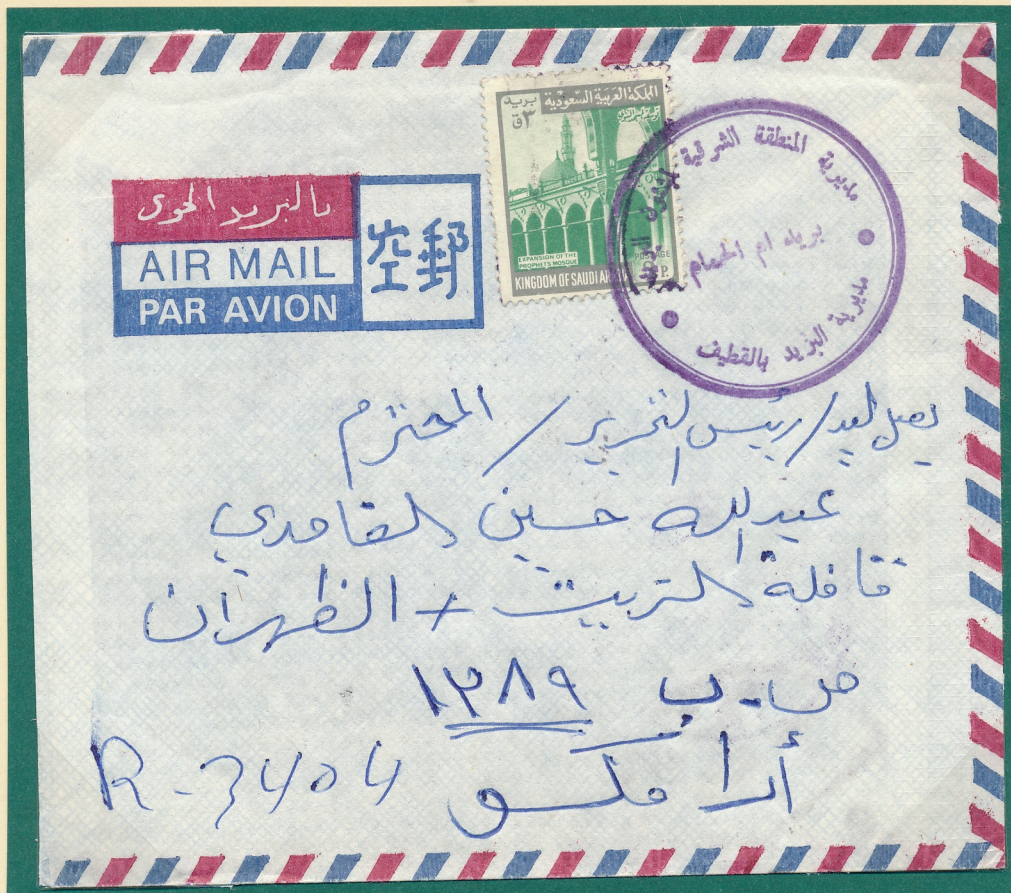 بالبريد الجوى
AIR MAIL
PAR AVION
空郵
المملكة العربية السعودية
بريد
٣ق
EXPANSION OF THE
PROPHETS MOSQUE
POSTAGE
P.
KINGDOM OF SAUDI AR
مديرية المنطقة الشرقية
بريد ام الحمام
مديرية البريد بالقطيف
يصل ليد / رئيس التحرير / المحترم
عبدالله حسين الغامدي
قافلة الزيت - الظهران
ص.ب ١٣٨٩
أرامكو
R-3404